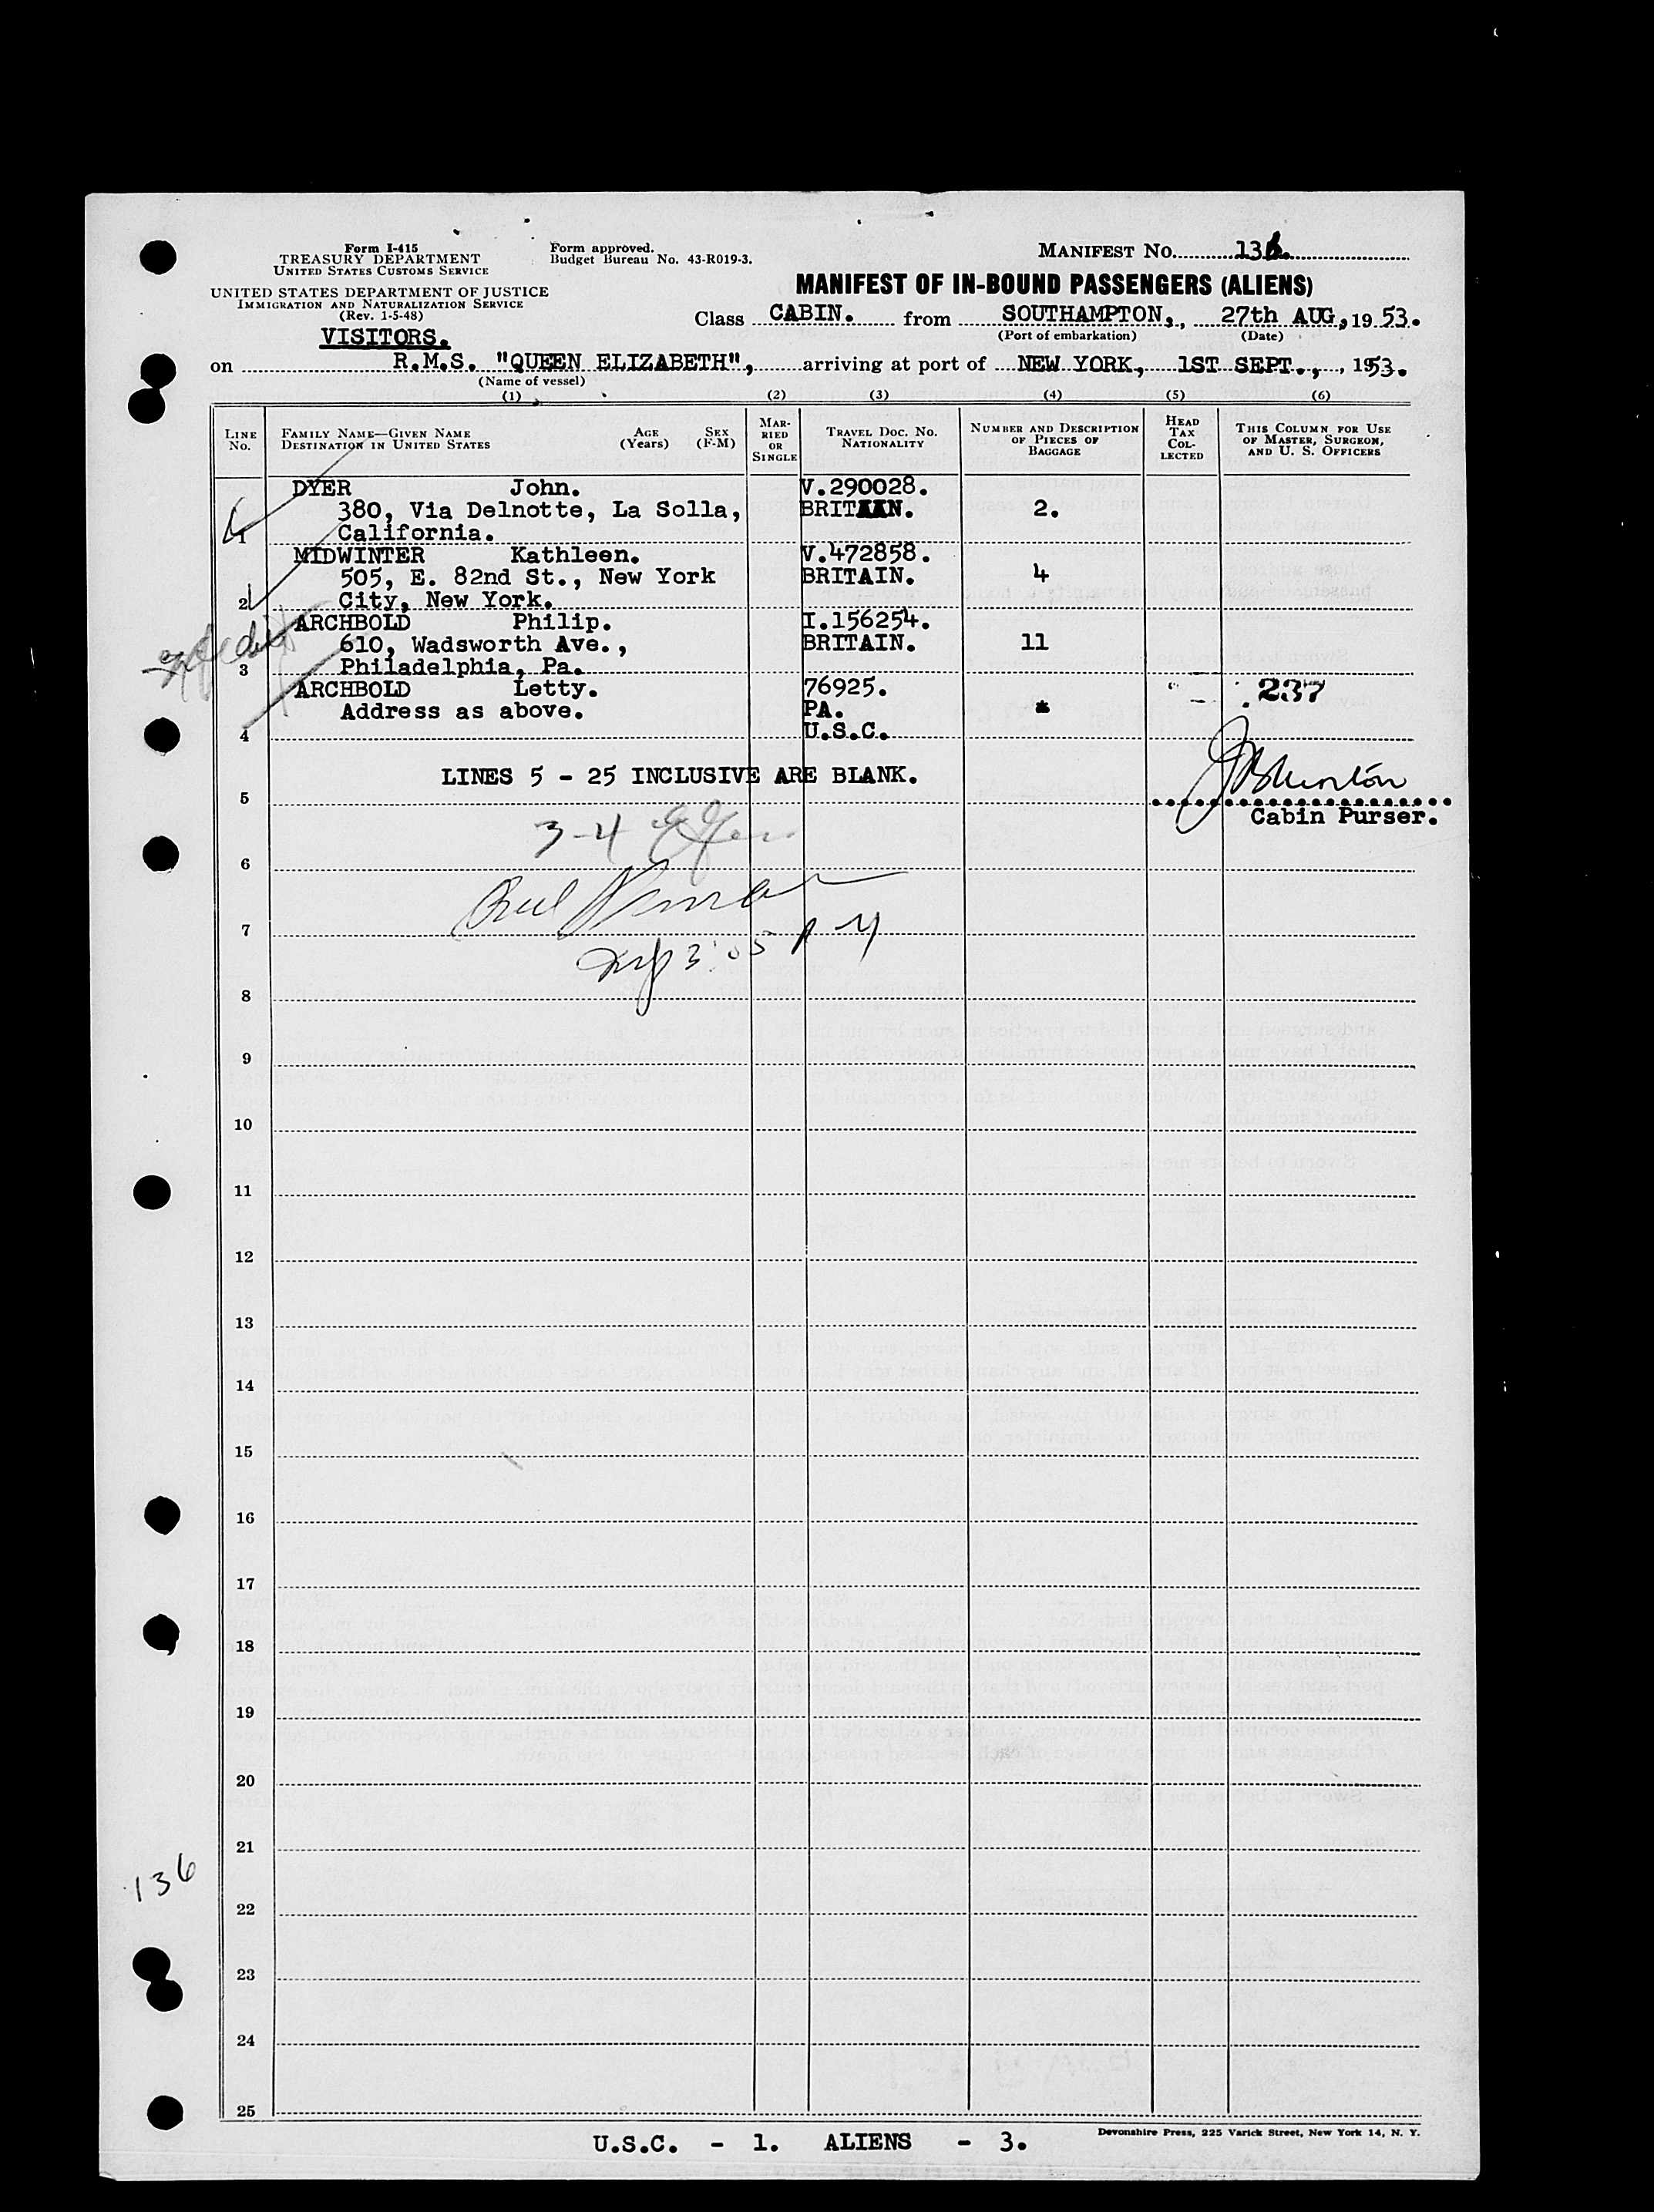 Form I-415
TREASURY DEPARTMENT
UNITED STATES CUSTOMS SERVICE
UNITED STATES DEPARTMENT OF JUSTICE
IMMIGRATION AND NATURALIZATION SERVICE
(Rev. 1-5-48)
VISITORS.
Form approved.
Budget Bureau No. 43-R019-3.
MANIFEST NO. 136.
MANIFEST OF IN-BOUND PASSENGERS (ALIENS)
Class CABIN. from SOUTHAMPTON, 27th AUG, 1953.
(Port of embarkation) (Date)
on R.M.S. "QUEEN ELIZABETH", arriving at port of NEW YORK, 1ST SEPT., 1953.
(Name of vessel)
(1) (2) (3) (4) (5) (6)
LINE NO.
FAMILY NAME—GIVEN NAME
DESTINATION IN UNITED STATES
AGE (Years)
SEX (F-M)
MARRIED OR SINGLE
TRAVEL DOC. NO.
NATIONALITY
NUMBER AND DESCRIPTION OF PIECES OF BAGGAGE
HEAD TAX COLLECTED
THIS COLUMN FOR USE OF MASTER, SURGEON, AND U. S. OFFICERS
DYER John. V.290028.
380, Via Delnotte, La Solla, BRITAIN. 2.
1 California.
MIDWINTER Kathleen. V.472858.
505, E. 82nd St., New York BRITAIN. 4
2 City, New York.
ARCHBOLD Philip. I.156254.
610, Wadsworth Ave., BRITAIN. 11
3 Philadelphia, Pa.
ARCHBOLD Letty. 76925. 237
Address as above. PA.
4 U.S.C.
LINES 5 - 25 INCLUSIVE ARE BLANK.
5
Cabin Purser.
3-4
6
7
3:05 PM
8
9
10
11
12
13
14
15
16
17
18
19
20
21
136
22
23
24
25
U.S.C. - 1. ALIENS - 3.
Devonshire Press, 225 Varick Street, New York 14, N. Y.